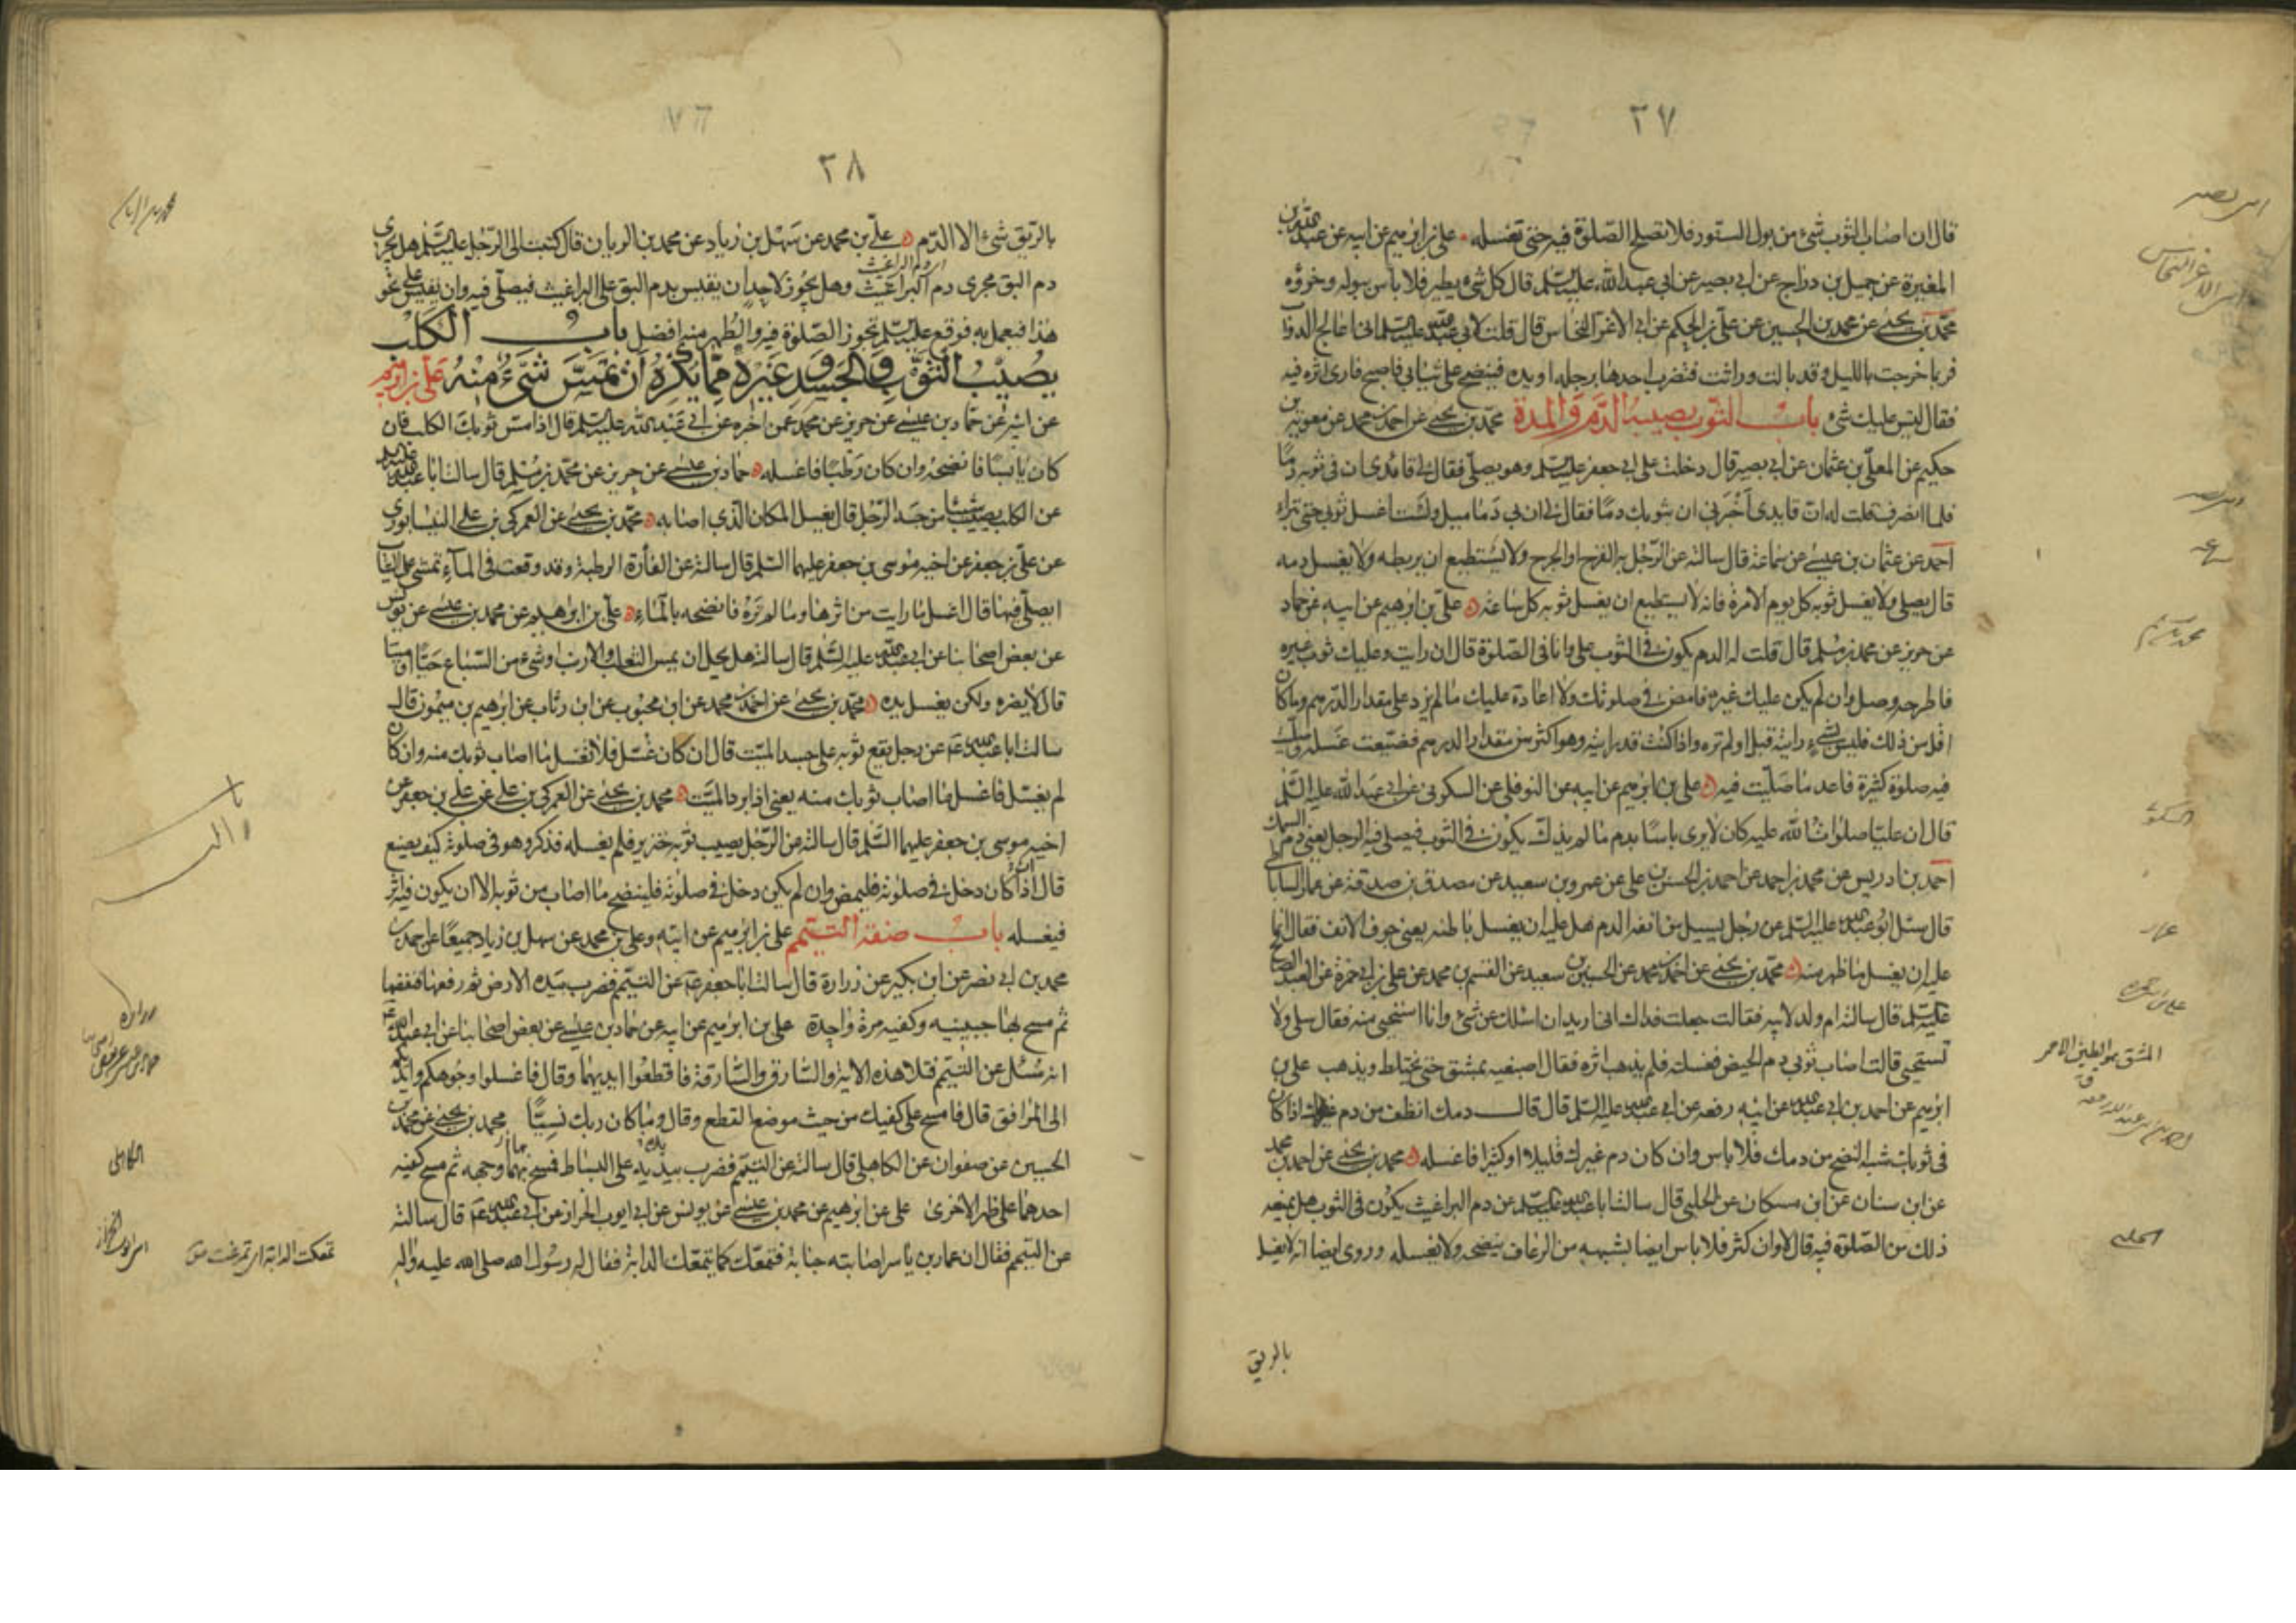 ٣٧
قال ان اصاب الثوب شئ من بول السنور فلا تصلح الصلوة فيه حتى تغسله علي بن ابرهيم عن ابيه عن عبد الله بن
المغيرة عن جميل بن دراج عن ابي بصير عن ابي عبد الله عليه السلم قال كل شئ يطير فلا باس ببوله وخرؤه
محمد بن يحيى عن محمد بن الحسين عن علي بن الحكم عن ابي الاغر النخاس قال قلت لابي عبد الله عليه السلم اني اعالج الدواب
فربما خرجت بالليل وقد بالت وراثت فتضرب احدها برجله او يده فينضح على ثيابي فاصبح فارى اثره فيه
فقال ليس عليك شئ باب الثوب يصيبه الدم والمدة محمد بن يحيى عن احمد بن محمد عن معوية بن
حكيم عن المعلى بن عثمان عن ابي بصير قال دخلت على ابي جعفر عليه السلم وهو يصلي فقال لي قائدي ان في ثوبه دما
فلما انصرف قلت له ان قايدي اخبرني ان بثوبك دما فقال لي ان بي دماميل ولست اغسل ثوبي حتى تبراء
احمد عن عثمان بن عيسى عن سماعة قال سالته عن الرجل به القرح او الجرح ولا يستطيع ان يربطه ولا يغسل دمه
قال يصلي ولا يغسل ثوبه كل يوم الا مرة فانه لا يستطيع ان يغسل ثوبه كل ساعة علي بن ابرهيم عن ابيه عن حماد
عن حريز عن محمد بن مسلم قال قلت له الدم يكون في الثوب علي وانا في الصلوة قال ان رايت وعليك ثوب غيره
فاطرحه وصل وان لم يكن عليك غيره فامض في صلوتك ولا اعادة عليك ما لم يزد على مقدار الدرهم وما كان
اقل من ذلك فليس بشئ رايته قبل او لم تره واذا كنت قد رايته وهو اكثر من مقدار الدرهم فضيعت غسله وصليت
فيه صلوة كثيرة فاعد ما صليت فيه علي بن ابرهيم عن ابيه عن النوفلي عن السكوني عن ابي عبد الله عليه السلم
قال ان عليا صلوات الله عليه كان لا يرى باسا بدم ما لم يذك يكون في الثوب فيصلي فيه الرجل يعني دم السمك
احمد بن ادريس عن محمد بن احمد عن احمد بن الحسن بن علي عن عمرو بن سعيد عن مصدق بن صدقة عن عمار الساباطي
قال سئل ابو عبد الله عليه السلم عن رجل يسيل من انفه الدم هل عليه ان يغسل باطنه يعني جوف الانف فقال انما
عليه ان يغسل ما ظهر منه محمد بن يحيى عن احمد بن محمد عن الحسين بن سعيد عن القسم بن محمد عن علي بن ابي حمزة عن العبد الصالح
عليه السلم قال سالته ام ولد لابيه فقالت جعلت فداك اني اريد ان اسئلك عن شئ وانا استحيي منه فقال سلي ولا
تستحيي قالت اصاب ثوبي دم الحيض فغسلته فلم يذهب اثره فقال اصبغيه بمشق حتى يختلط ويذهب علي بن
ابرهيم عن احمد بن ابي عبد الله عن ابيه رفعه عن ابي عبد الله عليه السلم قال قال دمك انظف من دم غيرك اذا كان
في ثوبك شبه النضح من دمك فلا باس وان كان دم غيرك قليلا او كثيرا فاغسله محمد بن يحيى عن احمد بن محمد
عن ابن سنان عن ابن مسكان عن الحلبي قال سالت ابا عبد الله عليه السلم عن دم البراغيث يكون في الثوب هل يمنعه
ذلك من الصلوة فيه قال لا وان كثر فلا باس ايضا بشبهه من الرعاف ينضحه ولا يغسله وروى ايضا انه لا يغسل
بالريق
ابي بصير
السكوني
عمار
علي بن ابي حمزة
المشق هو الطين الاحمر
الحلبي
٣٨
بالريق شئ الا الدم علي بن محمد عن سهل بن زياد عن محمد بن الريان قال كتبت الى الرجل عليه السلم هل يجري
دم البق مجرى دم البراغيث وهل يجوز لاحد ان يقيس بدم البق على البراغيث فيصلي فيه وان يقيس على نحو
هذا فيعمل به فوقع عليه السلم تجوز الصلوة فيه والطهر منه افضل باب الكلب
يصيب الثوب والجسد وغيره مما يكره ان يمس شئ منه علي بن ابرهيم
عن ابيه عن حماد بن عيسى عن حريز عن محمد عمن اخبره عن ابي عبد الله عليه السلم قال اذا مس ثوبك الكلب فان
كان يابسا فانضحه وان كان رطبا فاغسله حماد بن عيسى عن حريز عن محمد بن مسلم قال سالت ابا عبد الله عليه السلم
عن الكلب يصيب شيئا من جسد الرجل قال يغسل المكان الذي اصابه محمد بن يحيى عن العمركي بن علي النيسابوري
عن علي بن جعفر عن اخيه موسى بن جعفر عليهما السلم قال سالته عن الفأرة الرطبة وقد وقعت في الماء تمشي على الثياب
ايصلي فيها قال اغسل ما رايت من اثرها وما لم تره فانضحه بالماء علي بن ابرهيم عن محمد بن عيسى عن يونس
عن بعض اصحابنا عن ابي عبد الله عليه السلم قال سالته هل يحل ان يمس الثعلب والارنب او شئ من السباع حيا او ميتا
قال لا يضره ولكن يغسل يده محمد بن يحيى عن احمد بن محمد عن ابن محبوب عن ابن رئاب عن ابرهيم بن ميمون قال
سالت ابا عبد الله ع عن رجل يقع ثوبه على جسد الميت قال ان كان غسل فلا تغسل ما اصاب ثوبك منه وان كان
لم يغسل فاغسل ما اصاب ثوبك منه يعني اذا برد الميت محمد بن يحيى عن العمركي بن علي عن علي بن جعفر عن
اخيه موسى بن جعفر عليهما السلم قال سالته عن الرجل يصيب ثوبه خنزير فلم يغسله فذكر وهو في صلوته كيف يصنع
قال اذا كان دخل في صلوته فليمض وان لم يكن دخل في صلوته فلينضح ما اصاب من ثوبه الا ان يكون فيه اثر
فيغسله باب صفة التيمم علي بن ابرهيم عن ابيه وعلي بن محمد عن سهل بن زياد جميعا عن احمد بن
محمد بن ابي نصر عن ابن بكير عن زرارة قال سالت ابا جعفر ع عن التيمم فضرب بيده الارض ثم رفعها فنفضها
ثم مسح بها جبينيه وكفيه مرة واحدة علي بن ابرهيم عن ابيه عن حماد بن عيسى عن بعض اصحابنا عن ابي عبد الله ع
انه سئل عن التيمم فتلا هذه الاية والسارق والسارقة فاقطعوا ايديهما وقال فاغسلوا وجوهكم وايديكم
الى المرافق قال فامسح على كفيك من حيث موضع القطع وقال وما كان ربك نسيا محمد بن يحيى عن محمد بن
الحسين عن صفوان عن الكاهلي قال سالته عن التيمم فضرب بيديه على البساط فمسح بهما وجهه ثم مسح كفيه
احدهما على ظهر الاخرى علي عن ابرهيم عن محمد بن عيسى عن يونس عن ابي ايوب الخراز عن ابي عبد الله ع قال سالته
عن التيمم فقال ان عمار بن ياسر اصابته جنابة فتمعك كما يتمعك الدابة فقال له رسول الله صلى الله عليه واله
زرارة
الكاهلي
ابي ايوب الخراز
تمعكت الدابة اي تمرغت